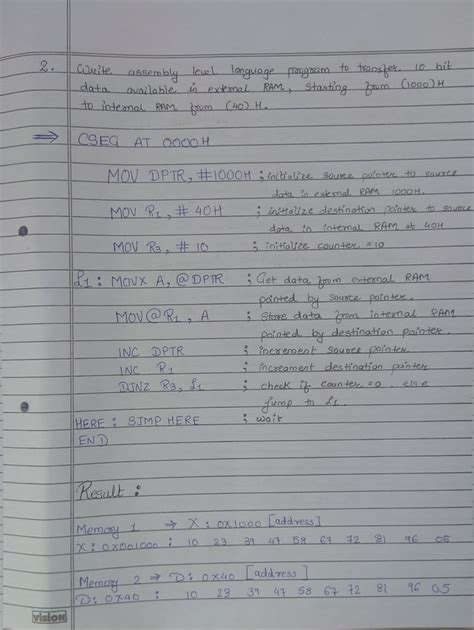 2. Write assembly level language program to transfer 10 bit
data available in external RAM, starting from (1000)H
to internal RAM from (40) H.
⇒ CSEG AT 0000H
MOV DPTR, #1000H ; initialize source pointer to source
data in external RAM 1000H.
MOV R1, # 40H ; initialize destination pointer to source
data in internal RAM at 40H
MOV R3, # 10 ; initialize counter = 10
L1 : MOVX A, @DPTR ; Get data from external RAM
pointed by source pointer.
MOV @R1, A ; Store data from internal RAM
pointed by destination pointer.
INC DPTR ; increment source pointer.
INC R1 ; increament destination pointer
DJNZ R3, L1 ; check if counter = 0, else
jump to L1.
HERE : SJMP HERE ; wait
END
Result :
Memory 1 → X : 0X1000 [address]
X : 0X001000 : 10 23 39 47 58 67 72 81 96 05
Memory 2 → D : 0X40 [address]
D : 0X40 : 10 23 39 47 58 67 72 81 96 05
vision